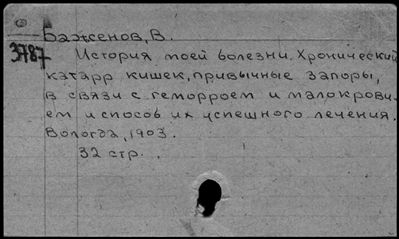 Баженов, В.
3787 История моей болезни. Хронический
катарр кишек, привычные запоры,
в связи с геморроем и малокрови-
ем и способ их успешного лечения.
Вологда, 1903.
32 стр.